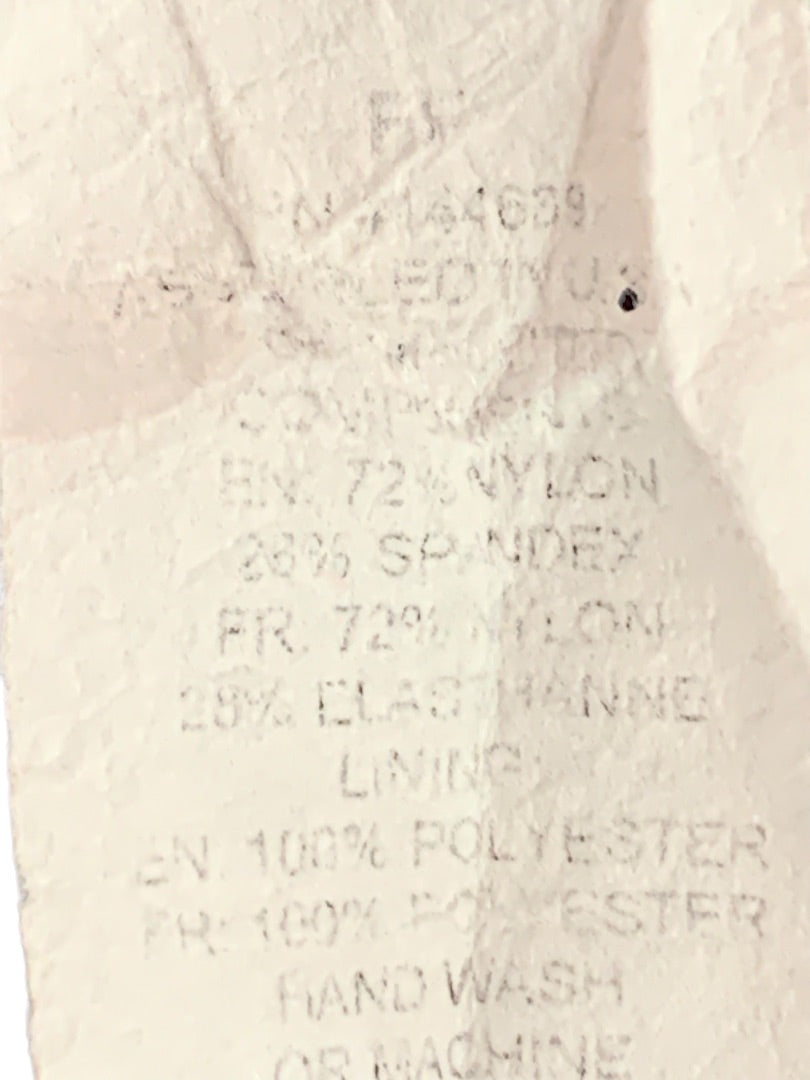 ASSEMBLED IN U.S
COMPONENTS
EN: 72% NYLON
28% SPANDEX
FR: 72% NYLON
28% ELASTHANNE
LINING
EN: 100% POLYESTER
FR: 100% POLYESTER
HAND WASH
OR MACHINE